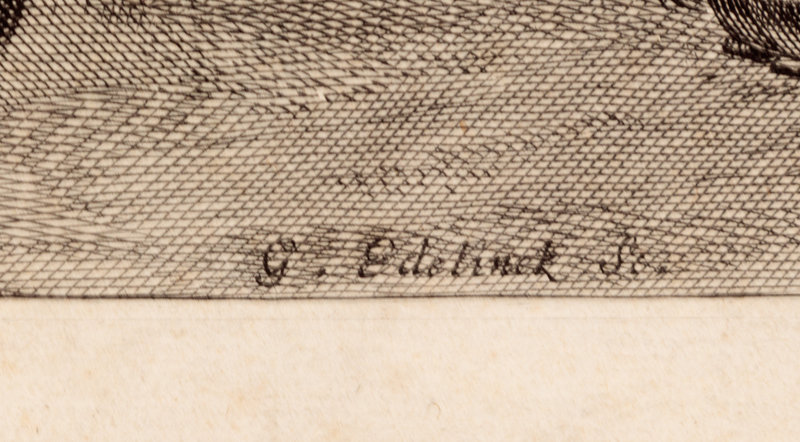 G. Edelinck Sc.